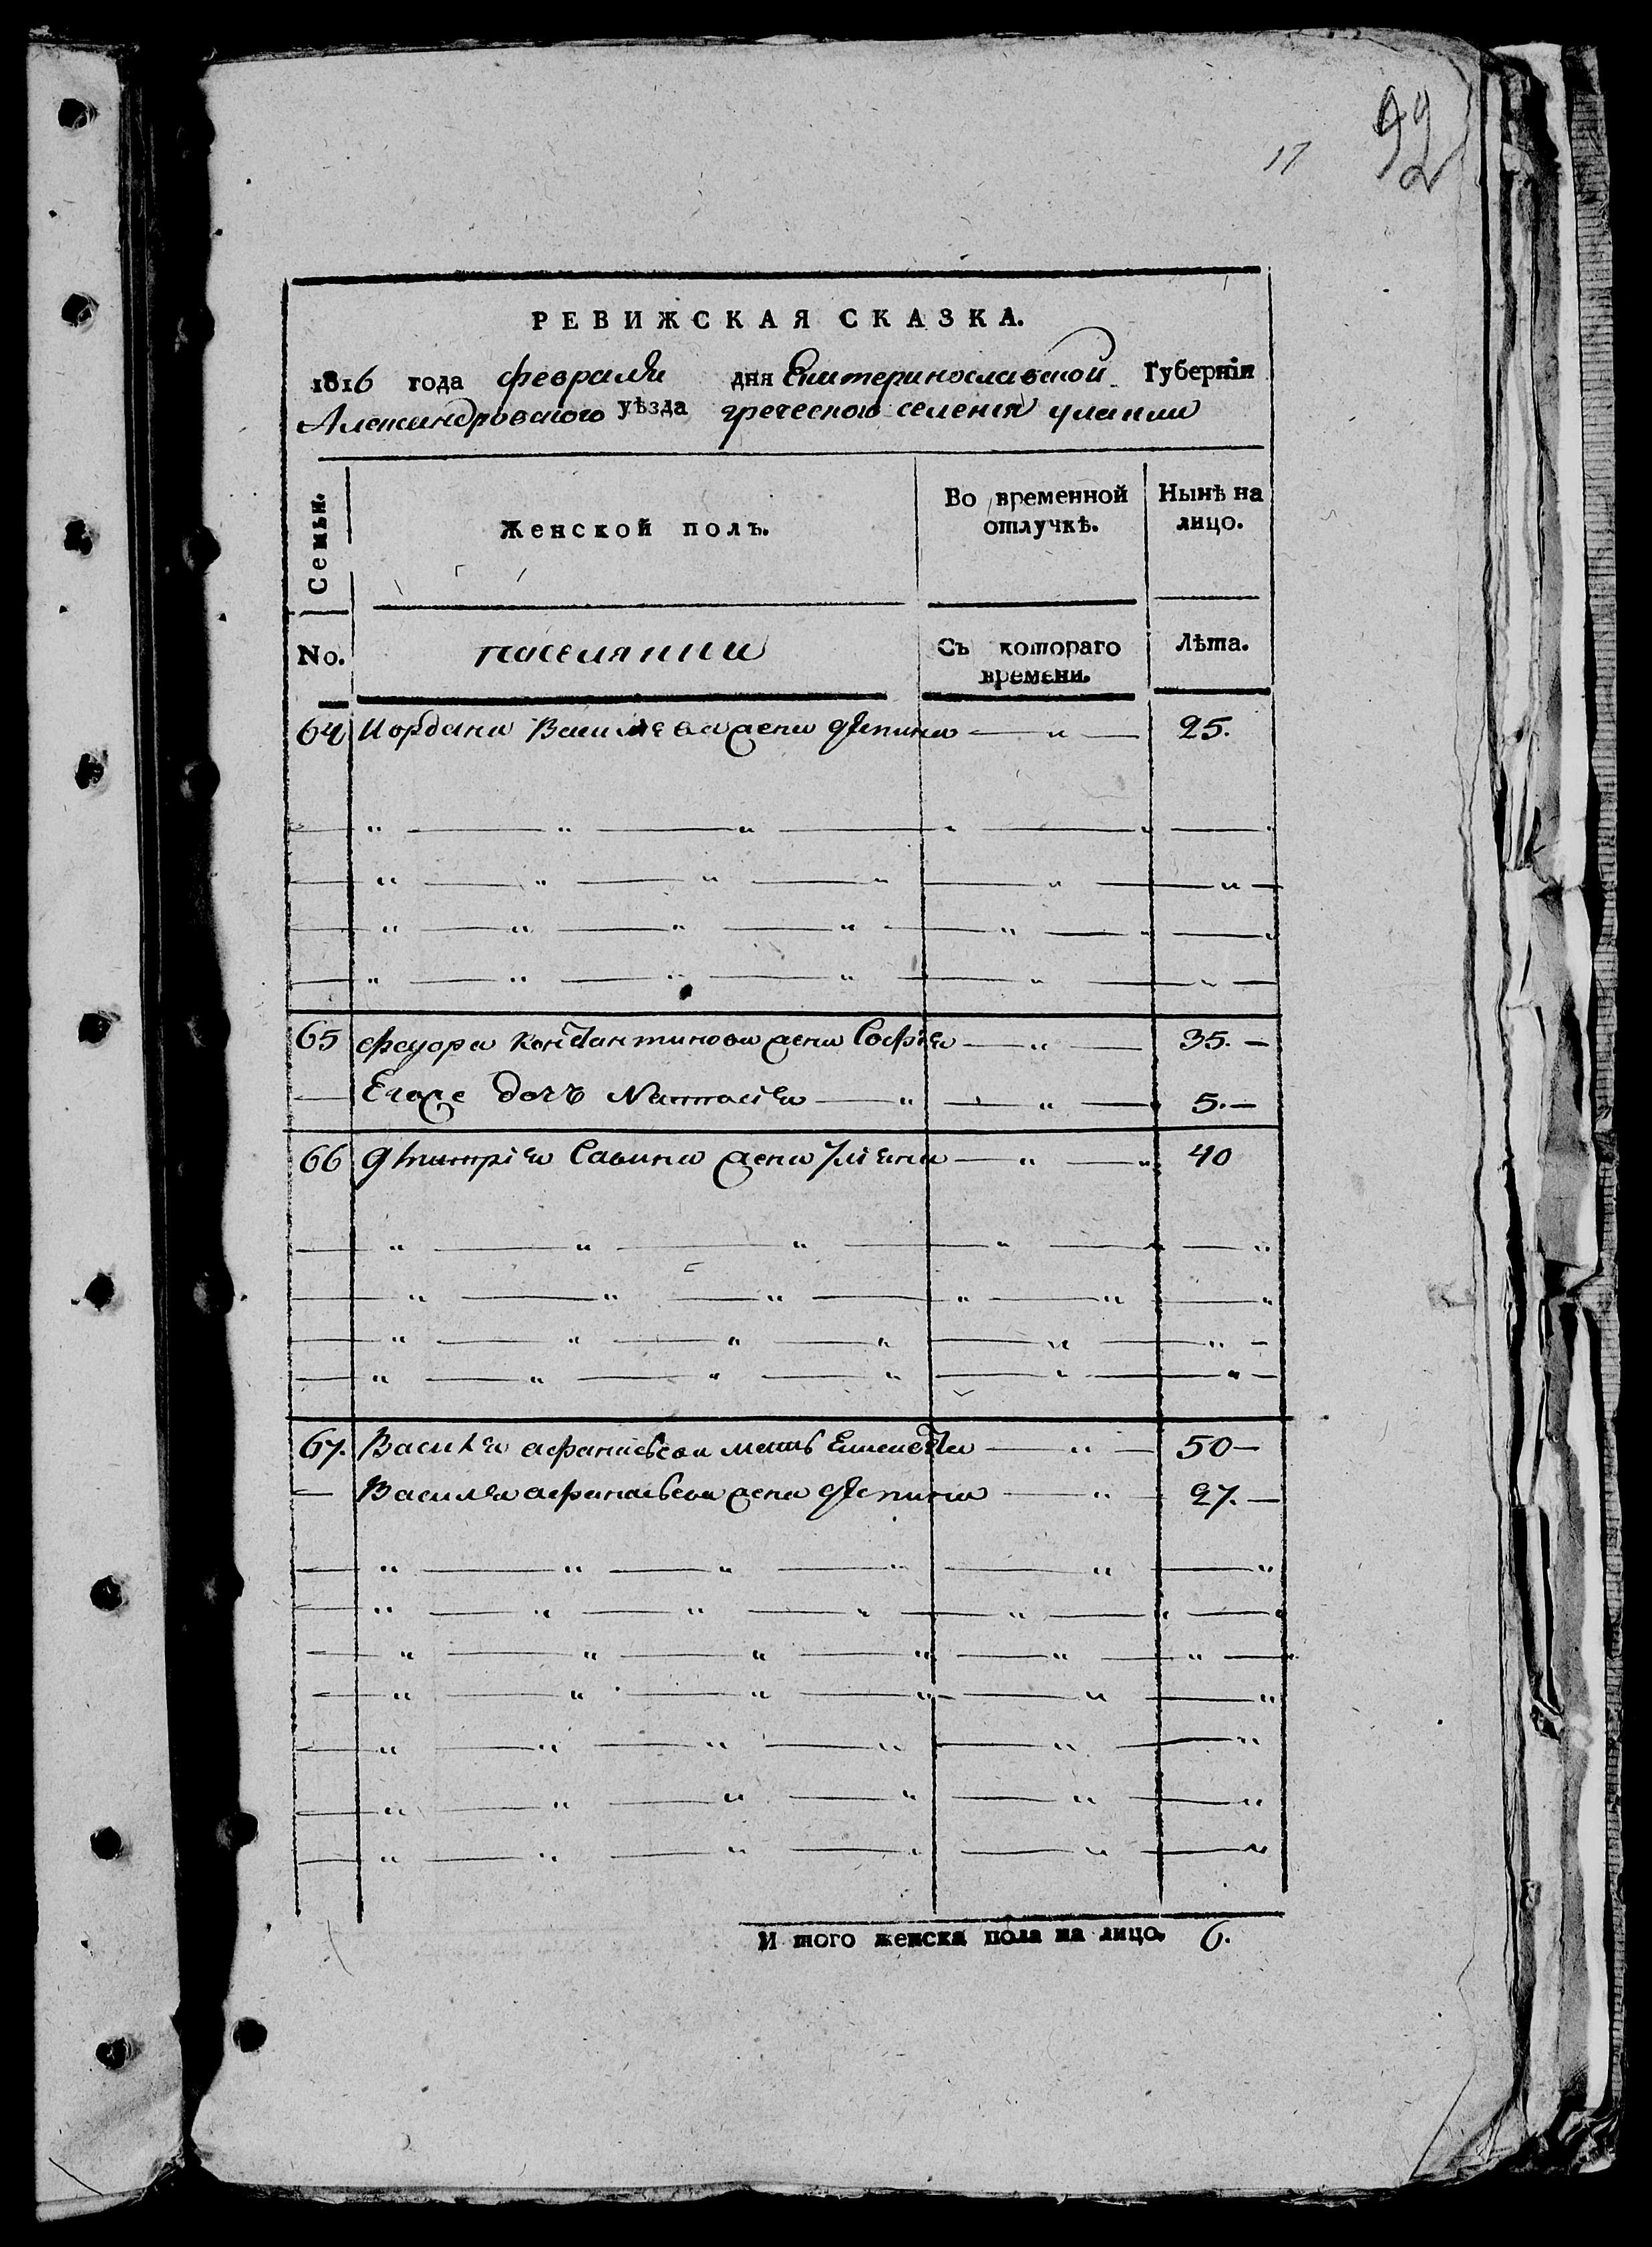 17
92
РЕВИЖСКАЯ СКАЗКА.
1816 года февраля дня Екатеринославской Губерніи
Александровского уѣзда греческого селения улаклы
Семьи.
Женской полъ.
Во временной отлучкѣ.
Нынѣ на лицо.
No.
поселянки
Съ котораго времени.
Лѣта.
64 Иордана Васильева жена деспина — " — 25.
65 феодора константинова жена Софія — " — 35. —
— Егоже дочь Наталія — " — " — 5. —
66 дмитрія Савина жена — " — " 40
67. Василя афанасьева мать — " — 50 —
— Василя афанасьева жена деспина — " — 27. —
И того женска пола на лицо. 6.